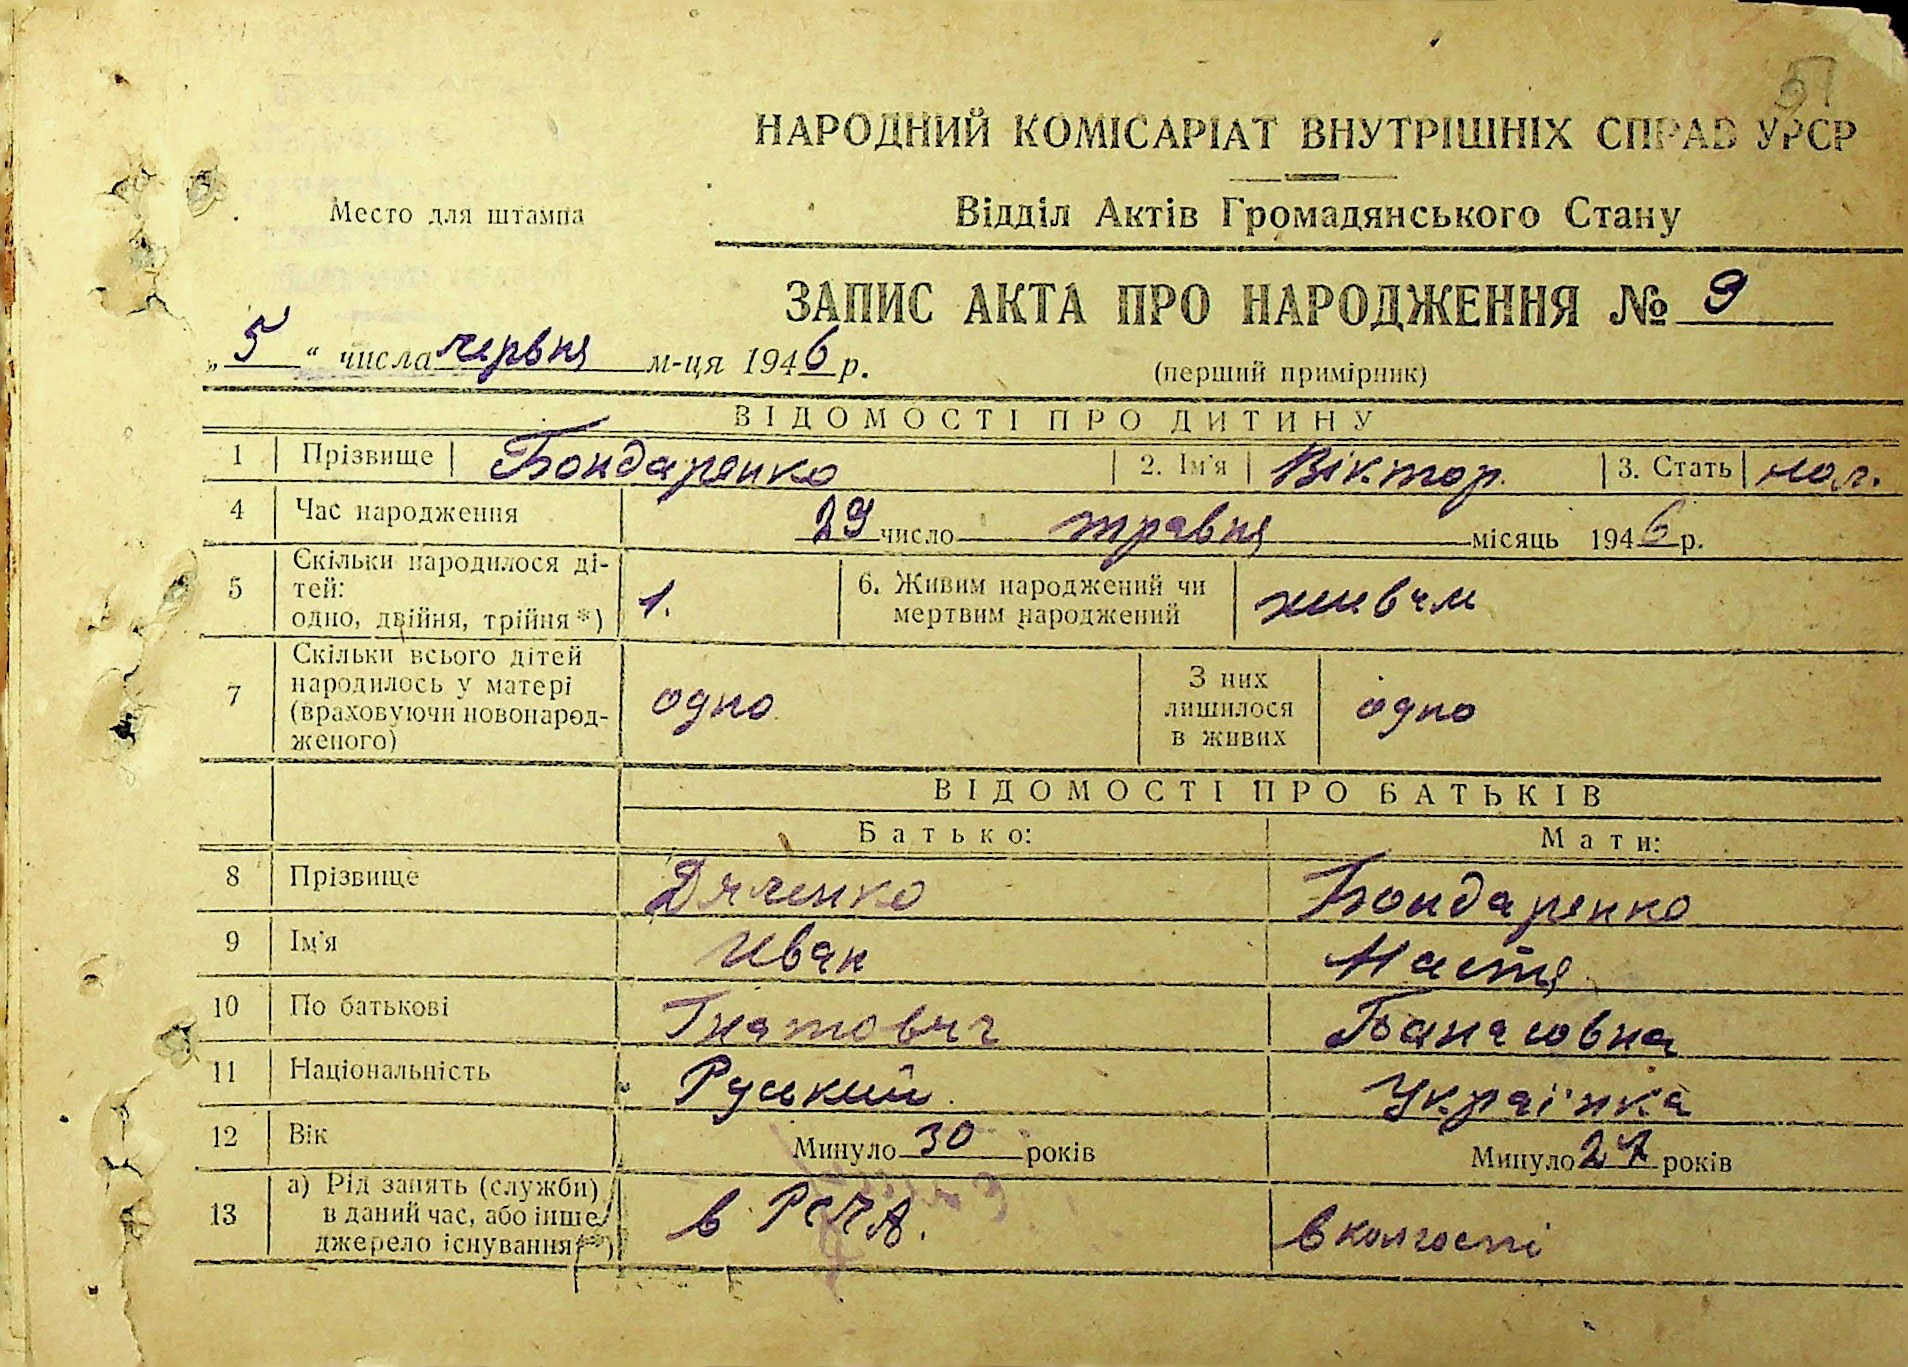 51
НАРОДНИЙ КОМІСАРІАТ ВНУТРІШНІХ СПРАВ УРСР
Место для штампа
Відділ Актів Громадянського Стану
ЗАПИС АКТА ПРО НАРОДЖЕННЯ № 9
„5“ числа червня м-ця 1946 р.
(перший примірник)
ВІДОМОСТІ ПРО ДИТИНУ
1 Прізвище Бондаренко 2. Ім'я Віктор. 3. Стать чол.
4 Час народження 29 число травня місяць 1946 р.
5 Скільки народилося ді-
тей:
одно, двійня, трійня *) 1. 6. Живим народжений чи
мертвим народжений живим
7 Скільки всього дітей
народилось у матері
(враховуючи новонарод-
женого) одно З них
лишилося
в живих одно
ВІДОМОСТІ ПРО БАТЬКІВ
Батько: Мати:
8 Прізвище Дяченко Бондаренко
9 Ім'я Иван Настя
10 По батькові Гнатович Панасовна
11 Національність Руський Українка
12 Вік Минуло 30 років Минуло 27 років
13 а) Рід занять (служби)
в даний час, або інше
джерело існування **) в РСЧА. в колгоспі